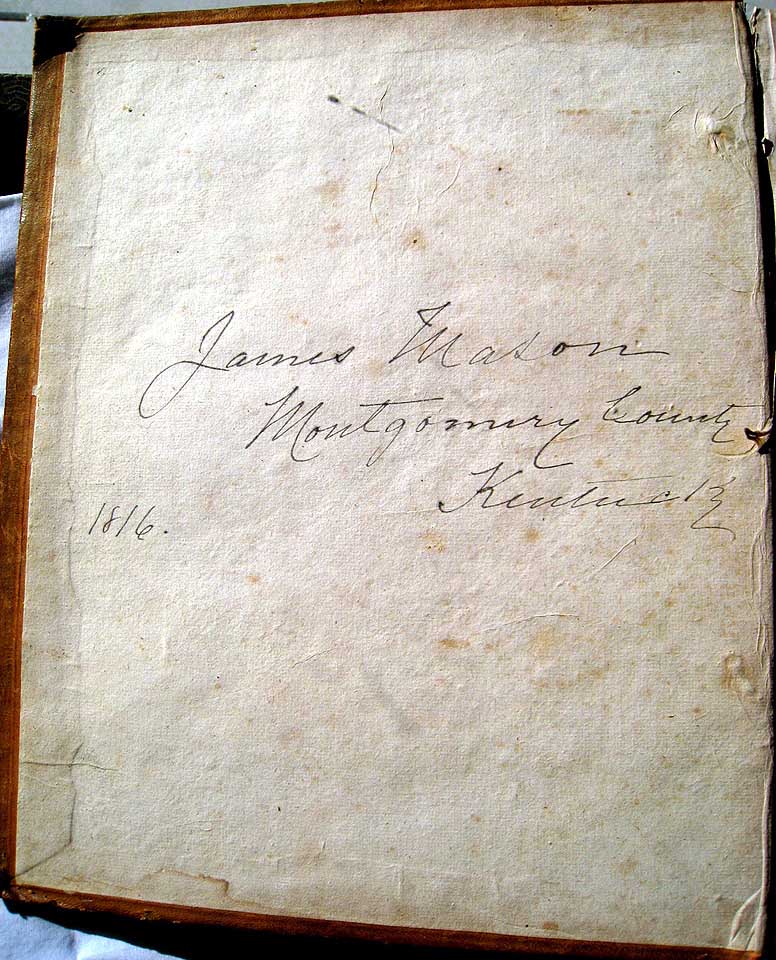 James Mason
Montgomery County
Kentucky
1816.